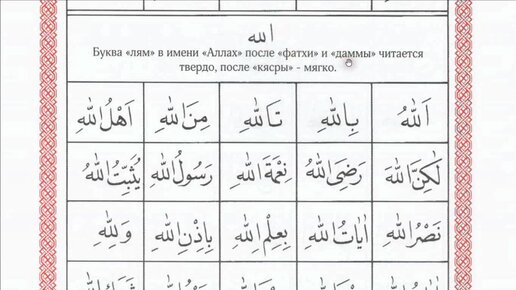 الله
Буква «лям» в имени «Аллах» после «фатхи» и «даммы» читается
твердо, после «кясры» - мягко.
اَللهُ بِاللهِ تَاللهِ مِنَ اللهِ اَهْلُ اللهِ
لٰكِنَّ اللهَ رَضِىَ اللهُ نِعْمَةَ اللهِ رَسُولُ اللهِ يُثَبِّتُ اللهُ
نَصْرُ اللهِ اٰيَاتُ اللهِ بِعِلْمِ اللهِ بِاِذْنِ اللهِ وَلِلهِ